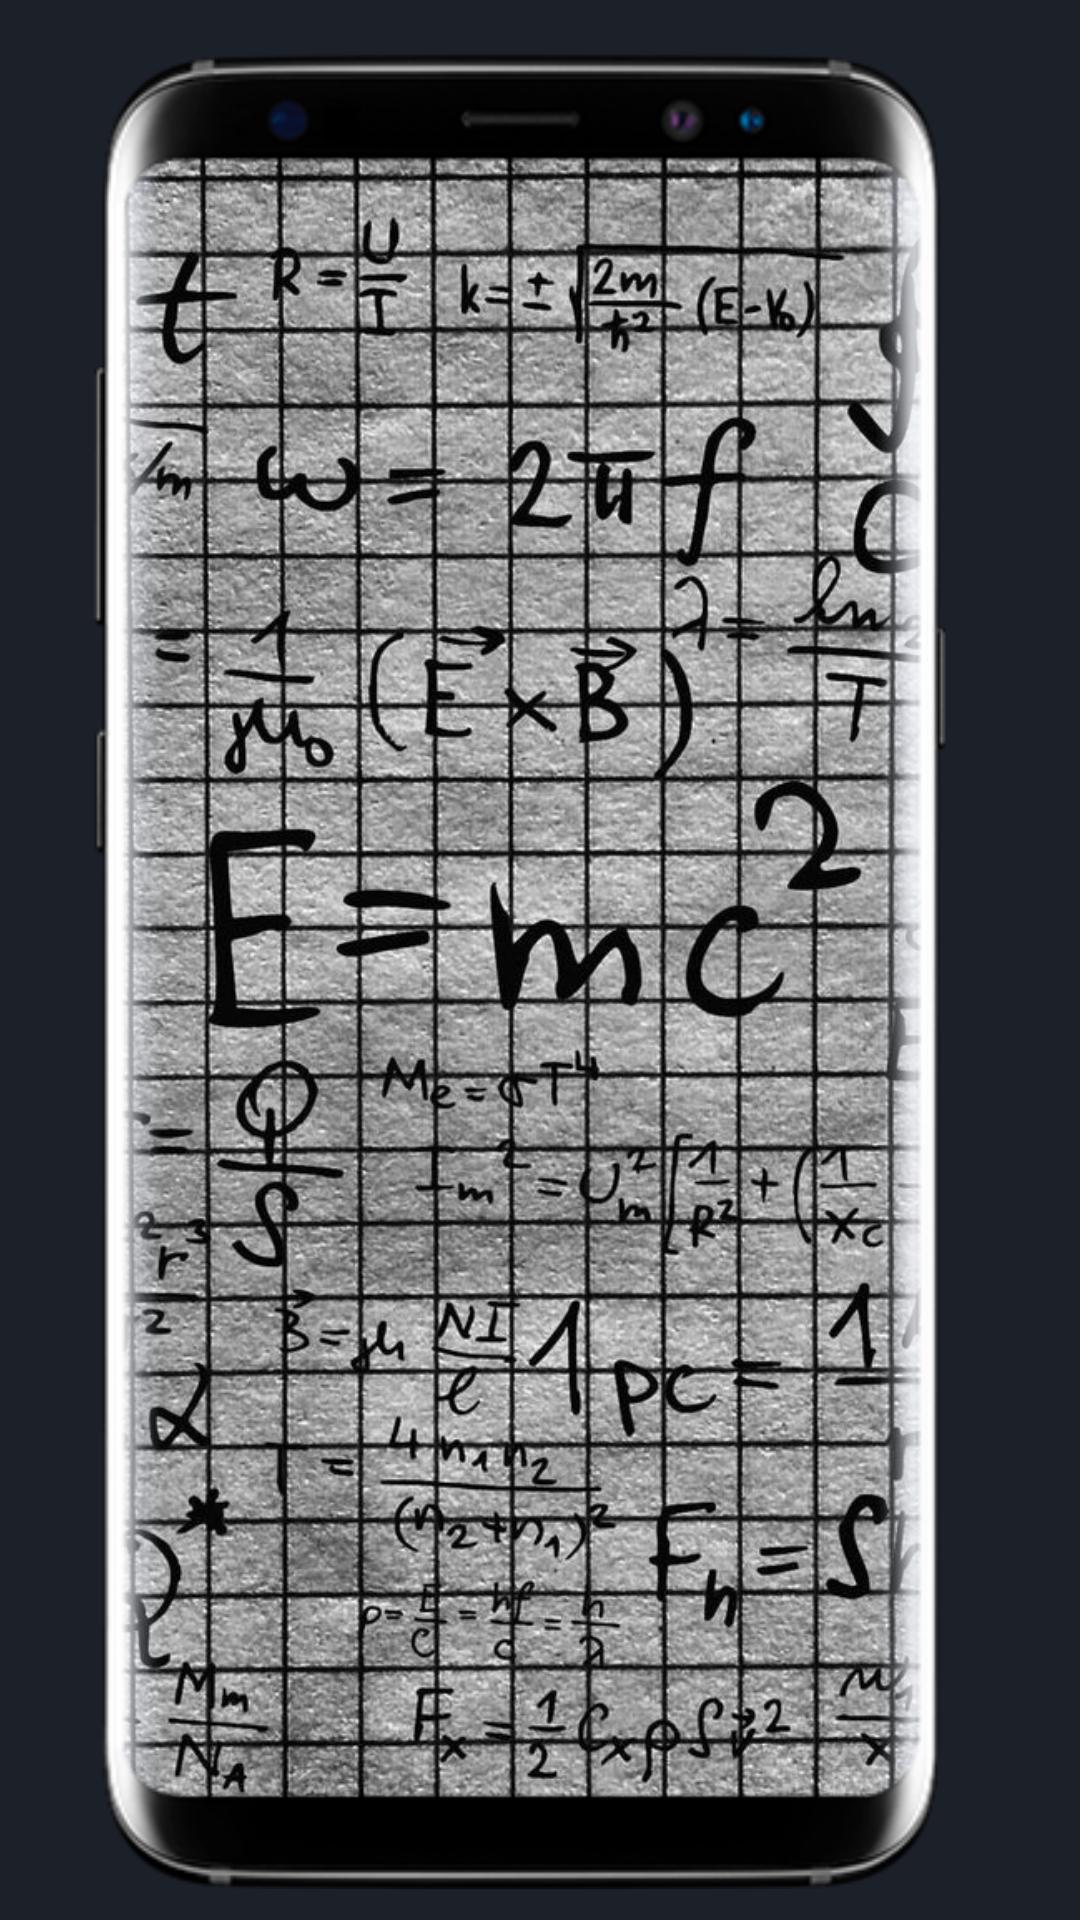 t R = U/I k = ± √(2m/ħ²) (E-V₀)
/m ω = 2πf
λ = ln 2/T
= 1/μ₀ (E⃗ × B⃗)
E = mc²
= Φ/S Mₑ = σT⁴
²r³/2 Iₘ² = Uₘ² [1/R² + (1/x_C
B⃗ = μ NI/ℓ 1 pc = 1
α
T = 4 n₁ n₂/(n₂+n₁)²
* Fₕ = S h
p = E/c = hf/c = h/λ
Mₘ/N_A Fₓ = 1/2 Cₓ ρ S v⃗²
x